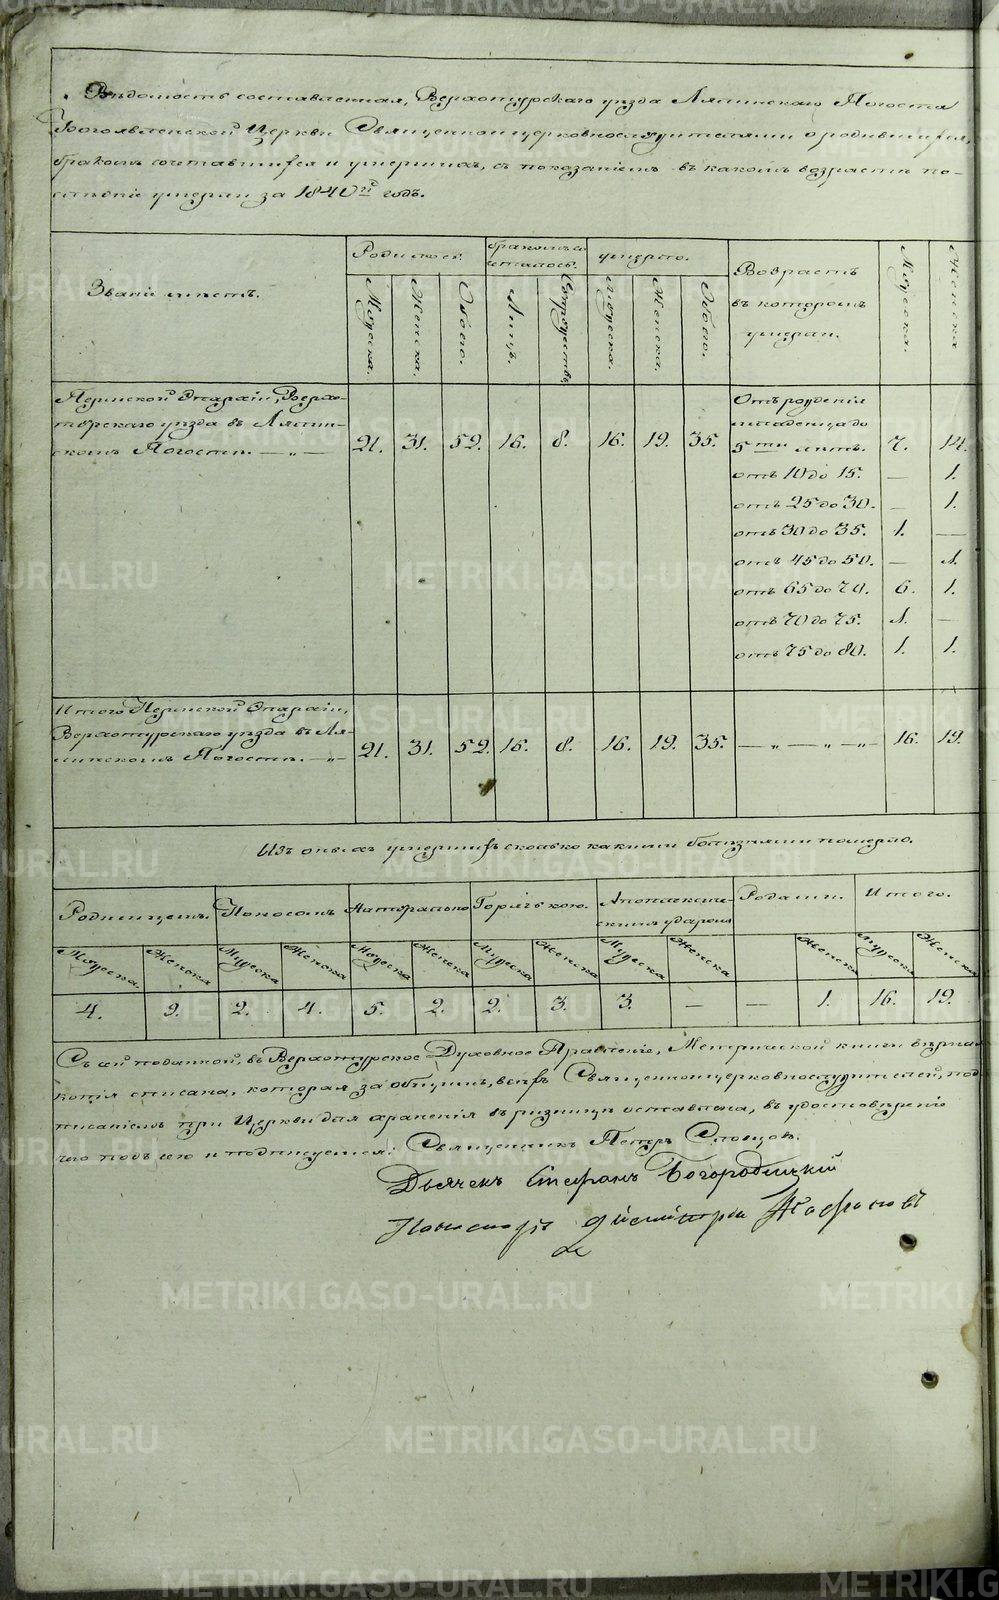 Вѣдомость составленная, Верхотурскаго уѣзда Лялинскаго Погоста
Богоявленской Церкви Священноцерковнослужителями о родившихся,
бракомъ сочетавшихся и умершихъ, съ показаніемъ въ какомъ возрастѣ по-
слѣдніе умерли за 1840й годъ.
Званіе мѣстъ.
Родилось.
бракомъ со-
четалось.
умерло.
Возрастъ
въ которомъ
умерли.
Мужеска.
Женска
Мужеска.
Женска.
Обоего.
Лицъ.
Супружествъ.
Мужеска.
Женска.
Обоего.
Пермской Епархіи, Верхо-
турскаго уѣзда въ Лялин-
скомъ Погостѣ. — „ —
21. 31. 52. 16. 8. 16. 19. 35.
Отъ рожденія
младенца до
5ти лѣтъ. 7. 14.
отъ 10 до 15. — 1.
отъ 25 до 30. — 1.
отъ 30 до 35. 1. —
отъ 45 до 50. — 1.
отъ 65 до 70. 6. 1.
отъ 70 до 75. 1. —
отъ 75 до 80. 1. 1.
Итого Пермской Епархіи,
Верхотурскаго уѣзда въ Ля-
линскомъ Погостѣ. — „ —
21. 31. 52. 16. 8. 16. 19. 35. — „ — „ — „ 16. 19.
Изъ оныхъ умершихъ сколько какими болѣзнями померло.
Родимцемъ. Поносомъ Натурально Горячкою. Апоплексиче-
скимъ ударомъ Родами. Итого.
Мужеска Женска Мужеска Женска Мужеска Женска Мужеска Женска Мужеска Женска Женска Мужеска Женска
4. 9. 2. 4. 5. 2. 2. 3. 3. — — 1. 16. 19.
Съ сей поданной, въ Верхотурское Духовное Правленіе, Метрической книги вѣрная
копія списана, которая за общимъ, всѣхъ Священноцерковнослужителей, под-
писаніемъ при Церкви для храненія въ ризницѣ оставлена, въ удостовѣреніе
чего подъ сею и подписуемся: Священникъ Петръ Словцовъ.
Дьячекъ Стефанъ Богородицкій
Пономарь Димитрій
METRIKI.GASO-URAL.RU